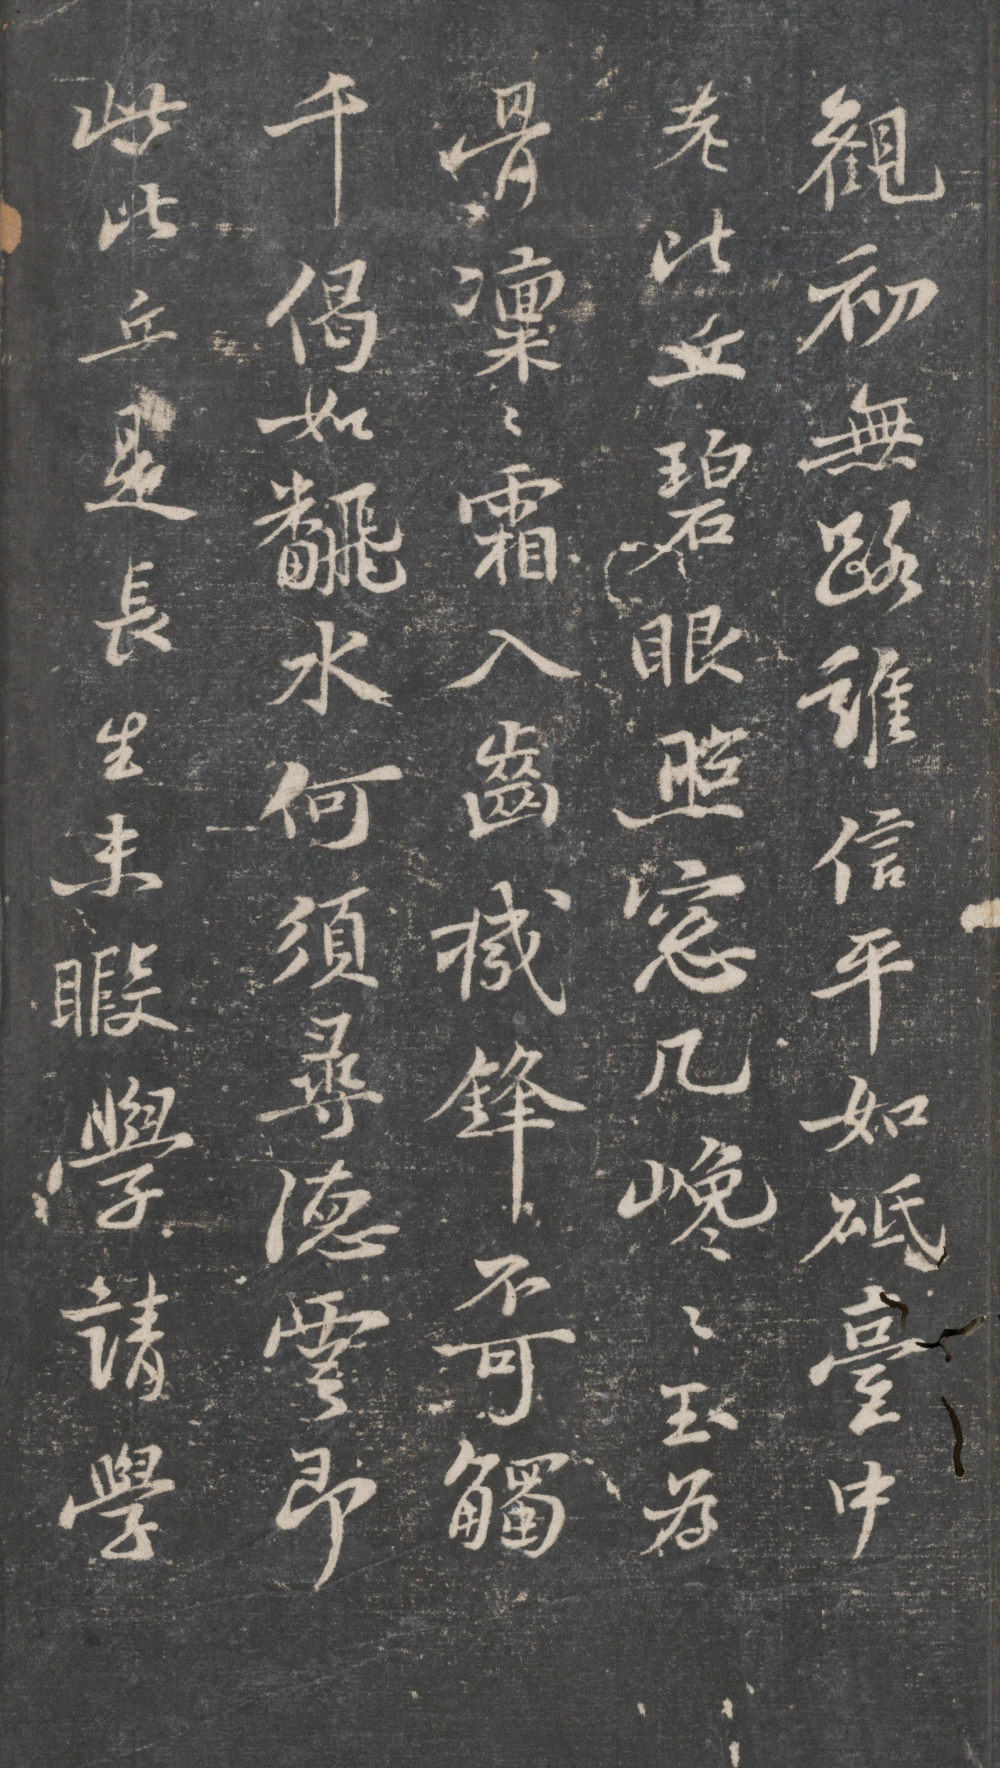 觀初無路誰信平如砥臺中
老比丘碧眼照窓几巉〻玉為
骨凜〻霜入齒機鋒不可觸
千偈如翻水何須尋德雲即
此比丘是長生未暇學請學